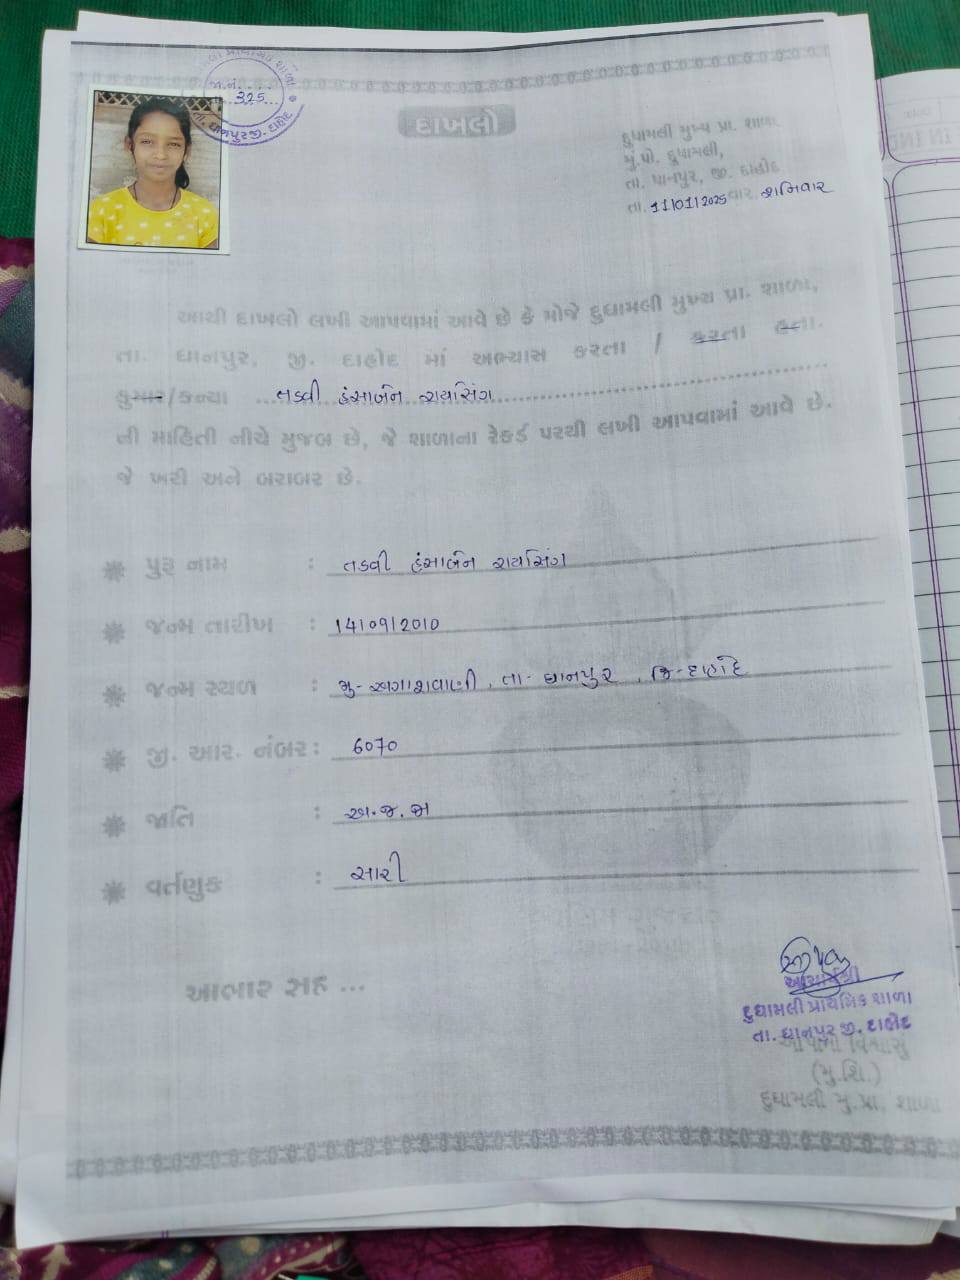 પ્રાથમિક શાળા
જા.નં.
325
તા. ધાનપુર જી. દાહોદ
દાખલો
દુધામલી મુખ્ય પ્રા. શાળા
મુ.પો. દુધામલી,
તા. ધાનપુર, જી. દાહોદ
તા. 11/01/2025 વાર શનિવાર
આથી દાખલો લખી આપવામાં આવે છે કે મોજે દુધામલી મુખ્ય પ્રા. શાળા,
તા. ધાનપુર, જી. દાહોદ માં અભ્યાસ કરતા / કરતા હતા.
કુમાર/કન્યા તડવી હંસાબેન રાયસિંગ
ની માહિતી નીચે મુજબ છે, જે શાળાના રેકર્ડ પરથી લખી આપવામાં આવે છે.
જે ખરી અને બરાબર છે.
પુરૂ નામ : તડવી હંસાબેન રાયસિંગ
જન્મ તારીખ : 14/09/2010
જન્મ સ્થળ : મુ- અગાશવાણી, તા- ધાનપુર, જિ-દાહોદ
જી. આર. નંબર : 6070
જાતિ : અ.જ.જા
વર્તણુક : સારી
આભાર સહ ...
આચાર્યશ્રી
દુધામલી પ્રાથમિક શાળા
તા. ધાનપુર જી. દાહોદ
આપનો વિશ્વાસુ
(મુ.શિ.)
દુધામલી મુ.પ્રા. શાળા